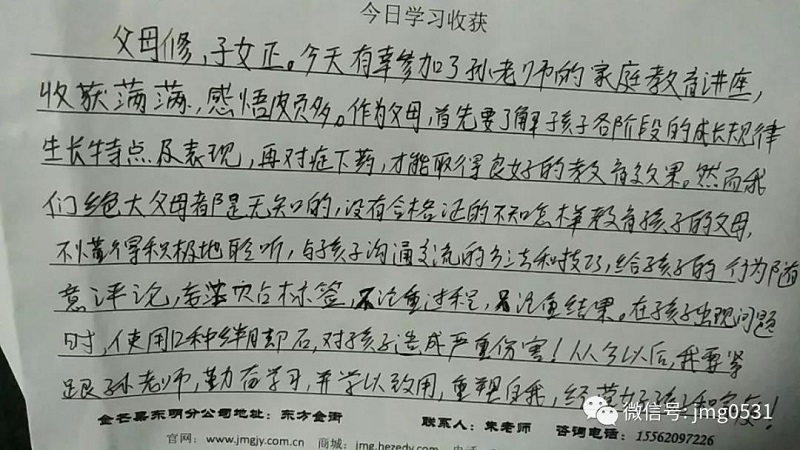 今日学习收获
父母修,子女正。今天有幸参加了孙老师的家庭教育讲座,
收获满满,感悟颇多。作为父母,首先要了解孩子各阶段的成长规律
生长特点及表现,再对症下药,才能取得良好的教育效果。然而我
们绝大父母都是无知的,没有合格证的不知怎样教育孩子的父母,
不懂得积极地聆听,与孩子沟通交流的方法和技巧,给孩子的行为随
意评论,去贴标签,不注重过程,只注重结果。在孩子出现问题
时,使用12种绊脚石,对孩子造成严重伤害!从今以后,我要紧
跟孙老师,勤奋学习,并学以致用,重塑自我,经营好孩子和家庭!
金名嘉东明分公司地址:东方金街 联系人:朱老师 咨询电话:15562097226
官网:www.jmgjy.com.cn 商城:jmg.hezedy.com
微信号: jmg0531